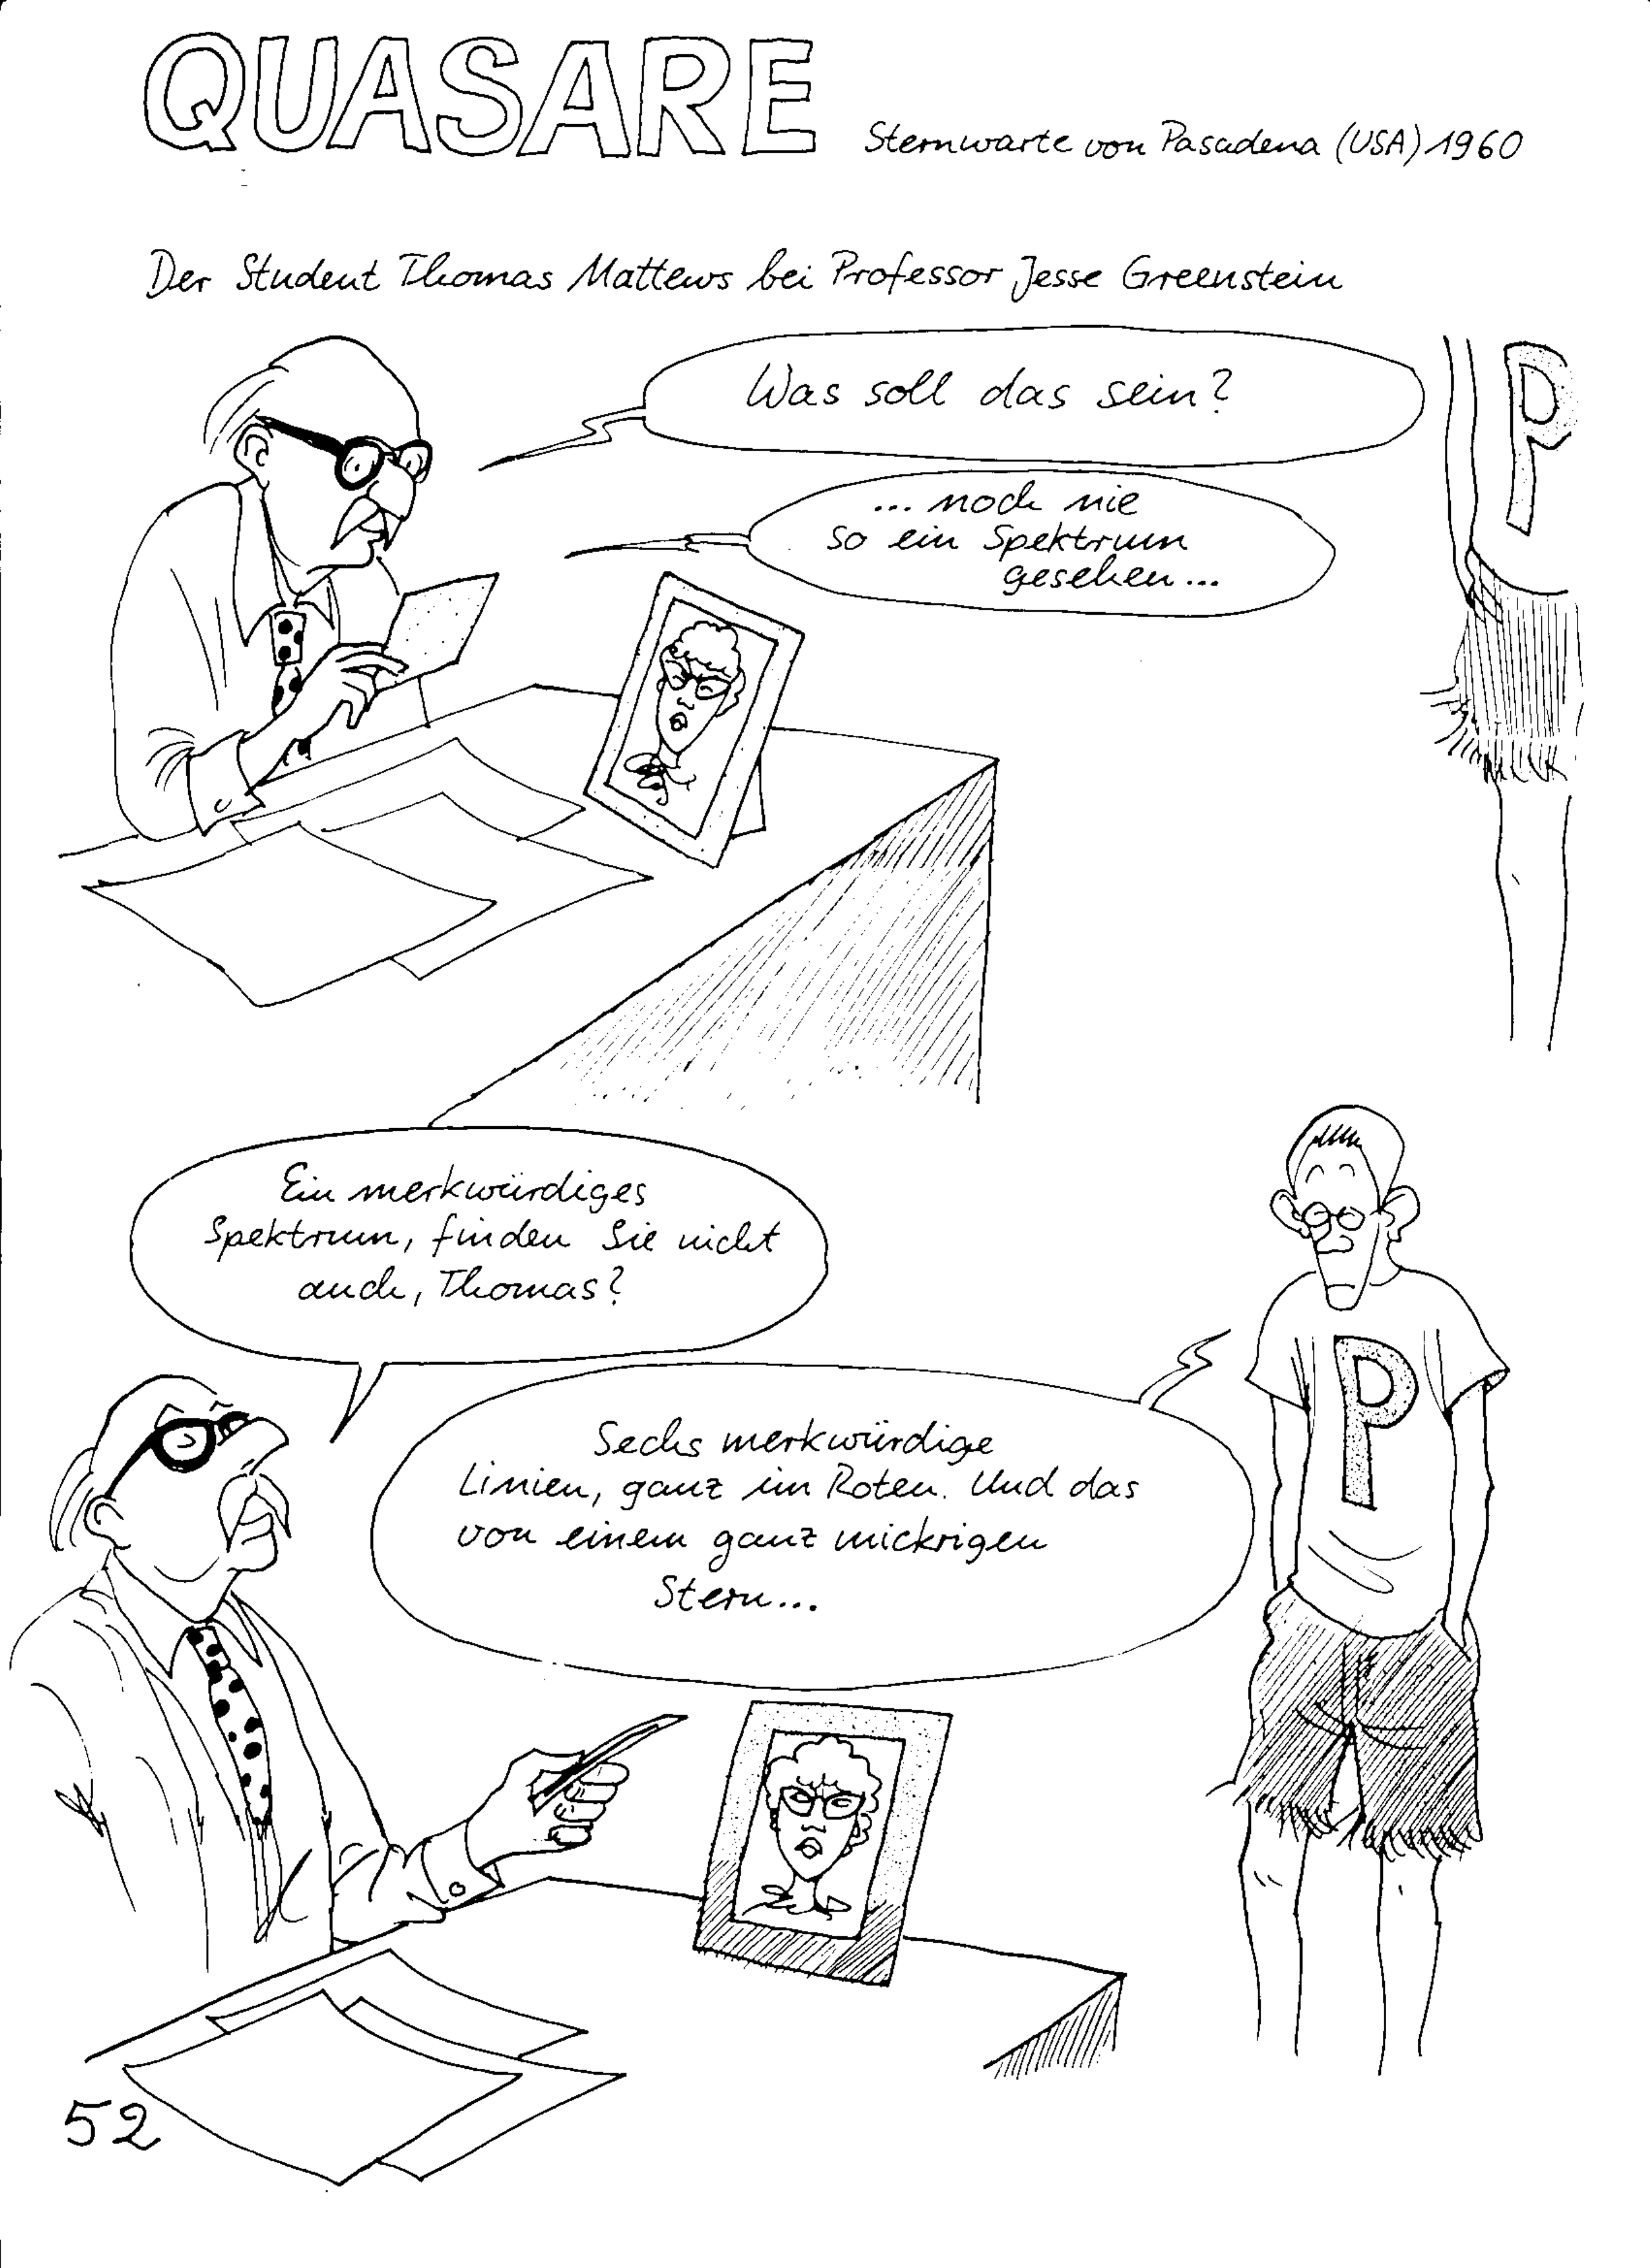 QUASARE
Sternwarte von Pasadena (USA) 1960
Der Student Thomas Mattews bei Professor Jesse Greenstein
Was soll das sein?
P
... noch nie
so ein Spektrum
gesehen...
Ein merkwürdiges
Spektrum, finden Sie nicht
auch, Thomas?
P
Sechs merkwürdige
Linien, ganz im Roten. Und das
von einem ganz mickrigen
Stern...
52